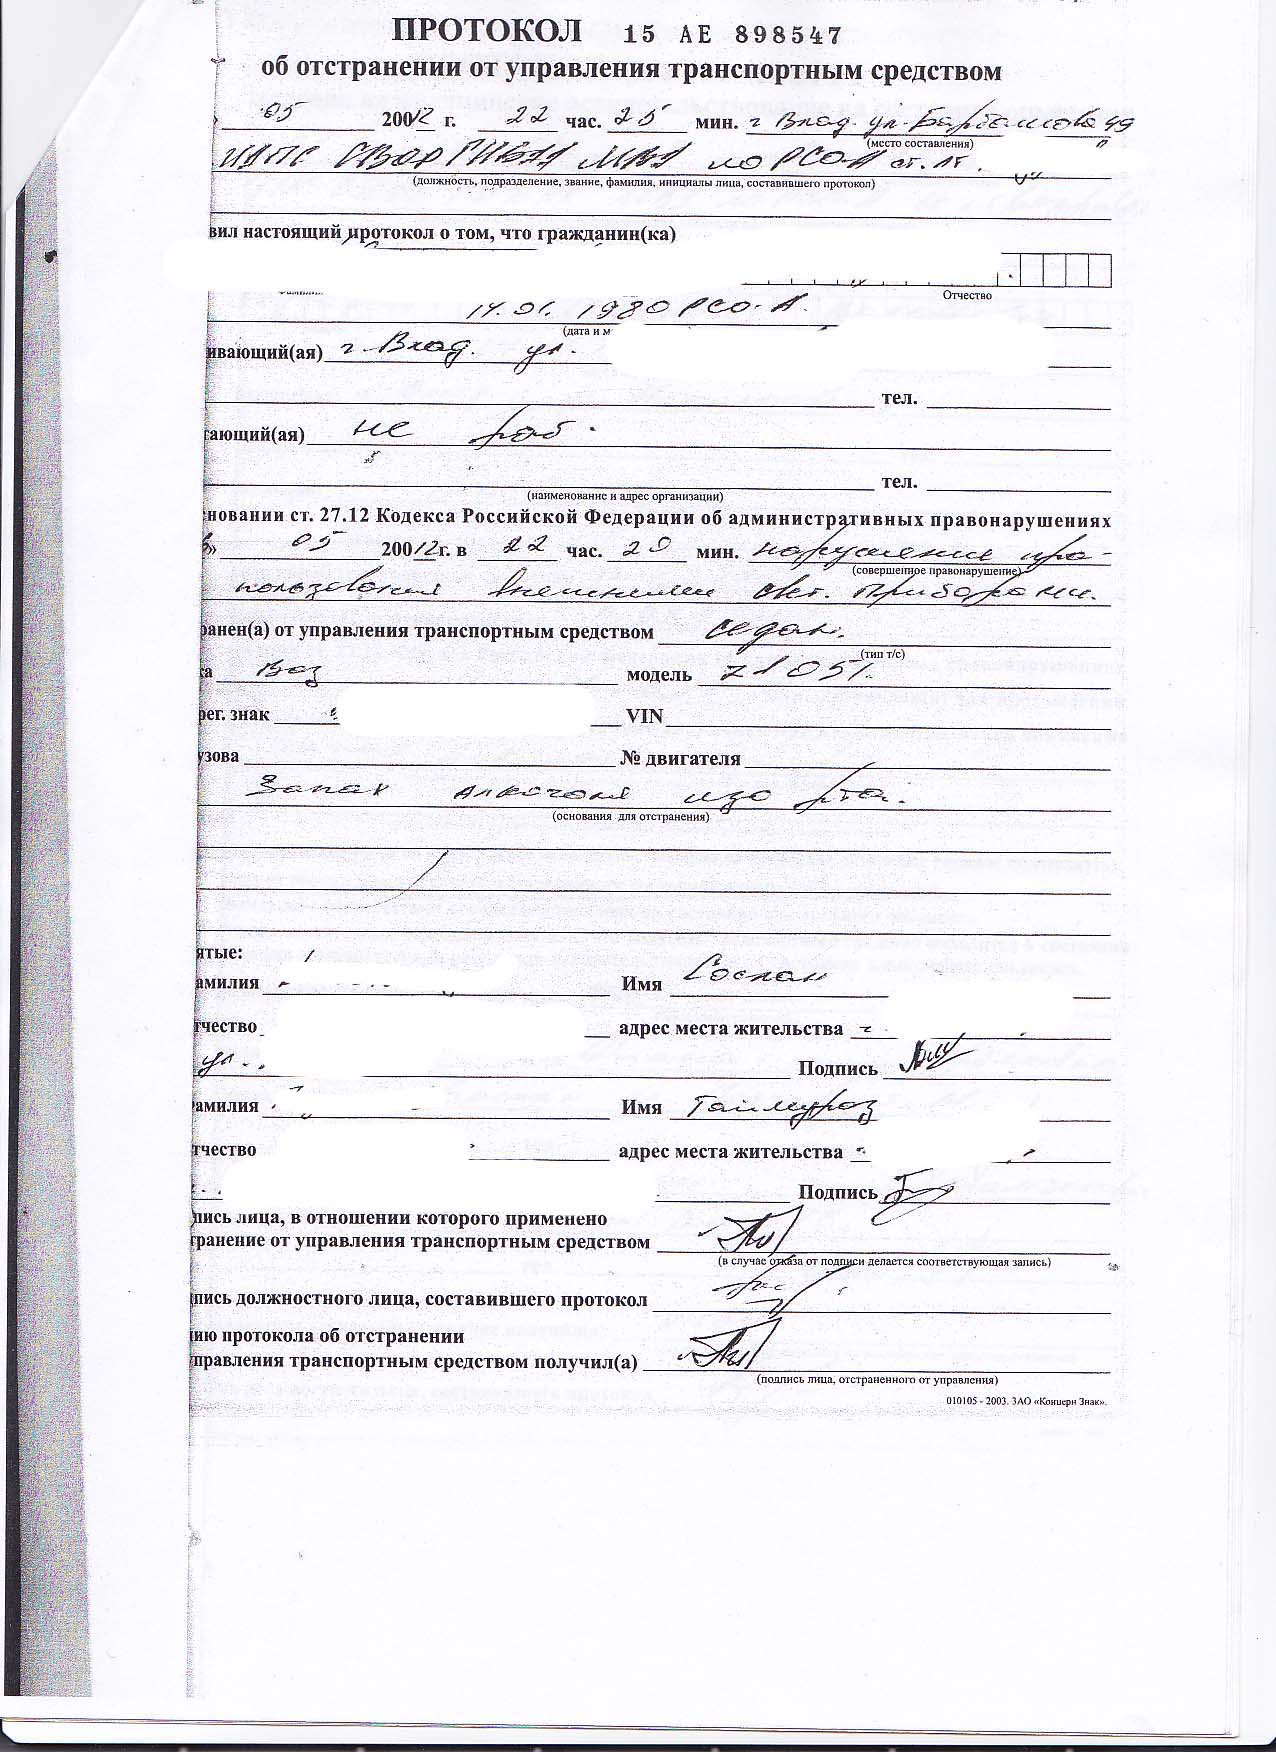 ПРОТОКОЛ 15 АЕ 898547
об отстранении от управления транспортным средством
» 05 20012 г. 22 час. 25 мин. г Влад. ул. Барбашова 49
(место составления)
ИДПС СВОР ГИБДД МВД по РСО-А ст. лт.
(должность, подразделение, звание, фамилия, инициалы лица, составившего протокол)
вил настоящий протокол о том, что гражданин(ка)
Отчество
14.01.1980 РСО-А.
(дата и м
ивающий(ая) г. Влад. ул.
тел.
ающий(ая) не раб.
тел.
(наименование и адрес организации)
новании ст. 27.12 Кодекса Российской Федерации об административных правонарушениях
» 05 20012 г. в 22 час. 20 мин. нарушение пра-
(совершенное правонарушение)
пользования внешними свет. приборами.
ранен(а) от управления транспортным средством седан.
(тип т/с)
ка Ваз модель 21051.
рег. знак VIN
узова № двигателя
Запах алкоголя изо рта.
(основания для отстранения)
ятые:
амилия Имя Сослан
тчество адрес места жительства г
ул. Подпись
амилия Имя Таймураз
тчество адрес места жительства
Подпись
пись лица, в отношении которого применено
ранение от управления транспортным средством
(в случае отказа от подписи делается соответствующая запись)
пись должностного лица, составившего протокол
ию протокола об отстранении
правления транспортным средством получил(а)
(подпись лица, отстраненного от управления)
010105 - 2003. ЗАО «Концерн Знак».